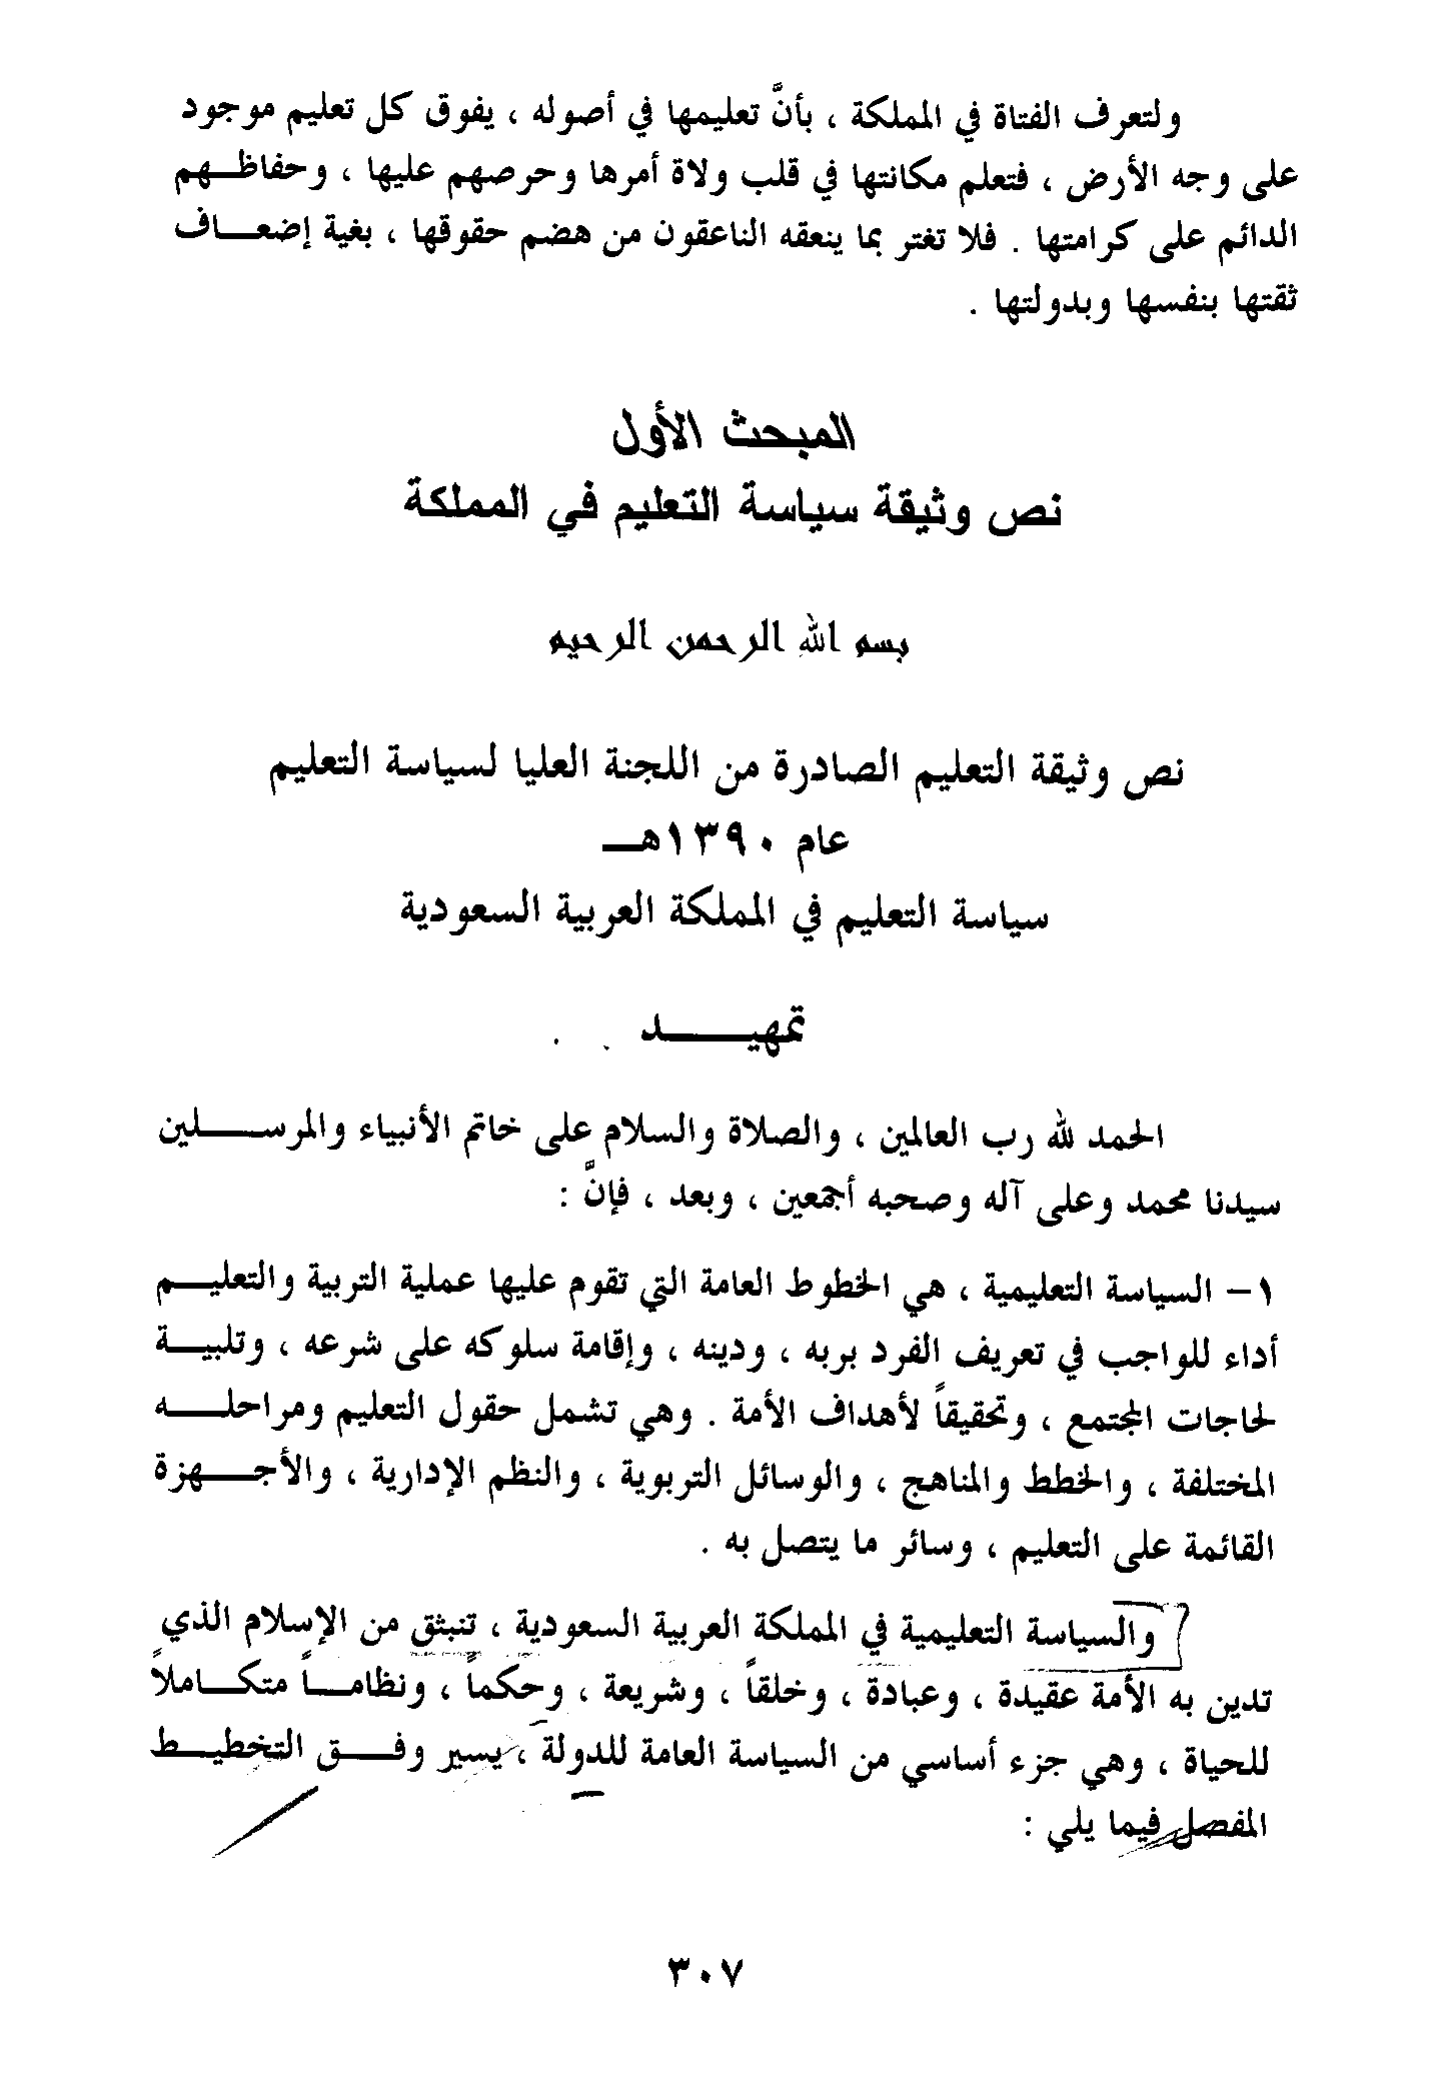 ولتعرف الفتاة في المملكة ، بأنَّ تعليمها في أصوله ، يفوق كل تعليم موجود
على وجه الأرض ، فتعلم مكانتها في قلب ولاة أمرها وحرصهم عليها ، وحفاظهم
الدائم على كرامتها . فلا تغتر بما ينعقه الناعقون من هضم حقوقها ، بغية إضعاف
ثقتها بنفسها وبدولتها .
المبحث الأول
نص وثيقة سياسة التعليم في المملكة
بسم الله الرحمن الرحيم
نص وثيقة التعليم الصادرة من اللجنة العليا لسياسة التعليم
عام ١٣٩٠هـ
سياسة التعليم في المملكة العربية السعودية
تمهيد
الحمد لله رب العالمين ، والصلاة والسلام على خاتم الأنبياء والمرسلين
سيدنا محمد وعلى آله وصحبه أجمعين ، وبعد ، فإنَّ :
١– السياسة التعليمية ، هي الخطوط العامة التي تقوم عليها عملية التربية والتعليم
أداء للواجب في تعريف الفرد بربه ، ودينه ، وإقامة سلوكه على شرعه ، وتلبية
لحاجات المجتمع ، وتحقيقاً لأهداف الأمة . وهي تشمل حقول التعليم ومراحله
المختلفة ، والخطط والمناهج ، والوسائل التربوية ، والنظم الإدارية ، والأجهزة
القائمة على التعليم ، وسائر ما يتصل به .
والسياسة التعليمية في المملكة العربية السعودية ، تنبثق من الإسلام الذي
تدين به الأمة عقيدة ، وعبادة ، وخلقاً ، وشريعة ، وحكماً ، ونظاماً متكاملاً
للحياة ، وهي جزء أساسي من السياسة العامة للدولة ، يسير وفق التخطيط
المفصل فيما يلي :
٣٠٧